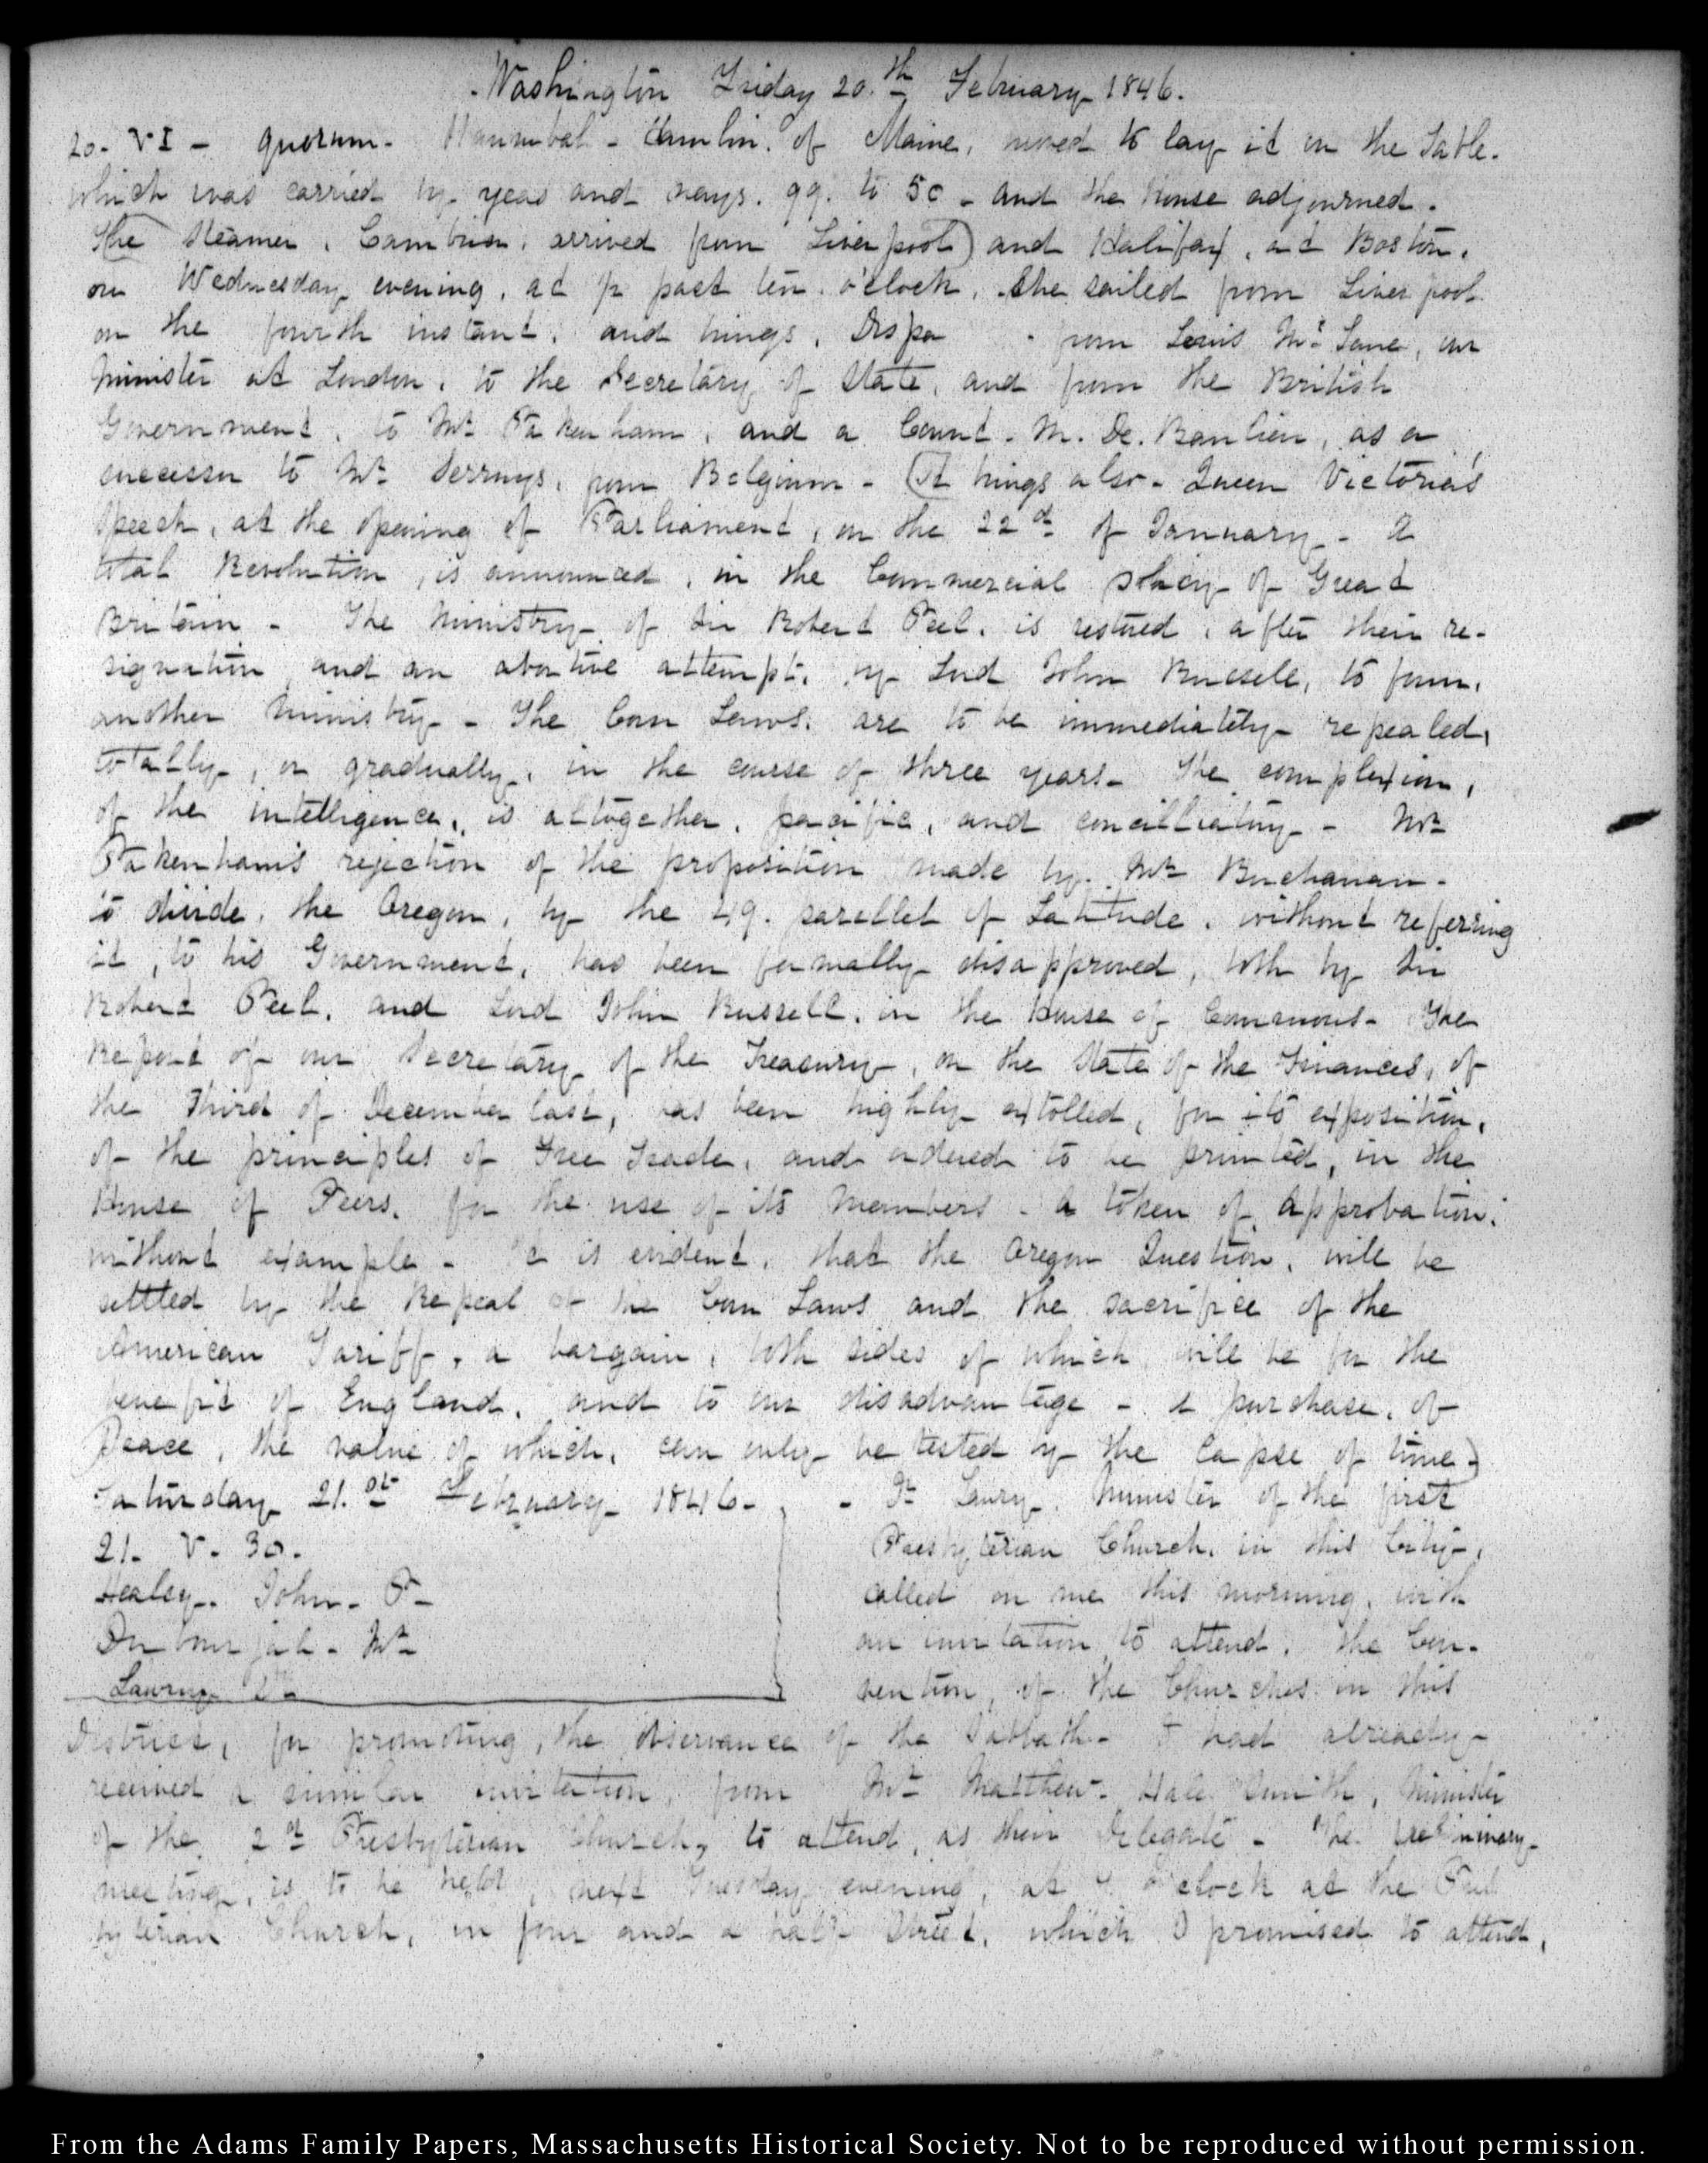 Washington Friday 20.th February 1846.
20. VI – quorum. Hannibal Hamlin. of Maine, moved to lay it on the Table.
which was carried by yeas and nays. 99. to 50 – and the House adjourned.
The steamer, Cambria, arrived from Liverpool) and Halifax, at Boston,
on Wednesday evening, at ½ past ten o'clock. She sailed from Liverpool
on the fourth instant. and brings, Dispa from Louis McLane, our
minister at London, to the Secretary of State, and from the British
Government, to Mr Pakenham, and a Count. M. De. Banlieu, as a
successor to Mr Serruys, from Belgium – (It brings also – Queen Victoria's
speech, at the opening of Parliament, on the 22d of January – A
total Revolution, is announced, in the Commercial policy of Great
Britain – The Ministry of Sir Robert Peel, is restored, after their re-
signation and an abortive attempt, by Lord John Russell, to form,
another Ministry – The Corn Laws. are to be immediately repealed,
totally, or gradually, in the course of three years – The complexion,
of the intelligence, is altogether, pacific, and concilliatory – Mr
Pakenham's rejection of the proposition made by Mr Buchanan –
to divide, the Oregon, by the 49. parallel of Latitude, without referring
it, to his Government, has been formally disapproved, both by Sir
Robert Peel, and Lord John Russell, in the House of Commons – The
Report of our Secretary of the Treasury, on the State of the Finances, of
the Third of December last, has been highly extolled, for its exposition,
of the principles of Free Trade, and ordered to be printed, in the
House of Peers, for the use of its Members – a token of approbation.
without example – It is evident, that the Oregon Question, will be
settled by the Repeal of the Corn Laws and the sacrifice of the
American Tariff, a bargain, both sides of which will be for the
benefit of England, and to our disadvantage – A purchase, of
Peace, the value of which, can only be tested by the lapse of time)
Saturday 21.st February 1846.
21. V. 30.
Healey. John. P.
Mr
Laurie Dr
– Dr Laury. Minister of the first
Presbyterian Church, in this City,
called on me this morning, with
an invitation, to attend, the Con-
vention, of the Churches in this
District, for promoting, the observance of the Sabbath – I had already
received a similar invitation, from Mr Matthew Hale Smith, Minister
of the 2d Presbyterian Church, to attend, as their Delegate – The preliminary
meeting, is to be held, next Tuesday evening, at 7 o'clock at the Pres
byterian Church, in four and a half Street, which I promised to attend,
From the Adams Family Papers, Massachusetts Historical Society. Not to be reproduced without permission.